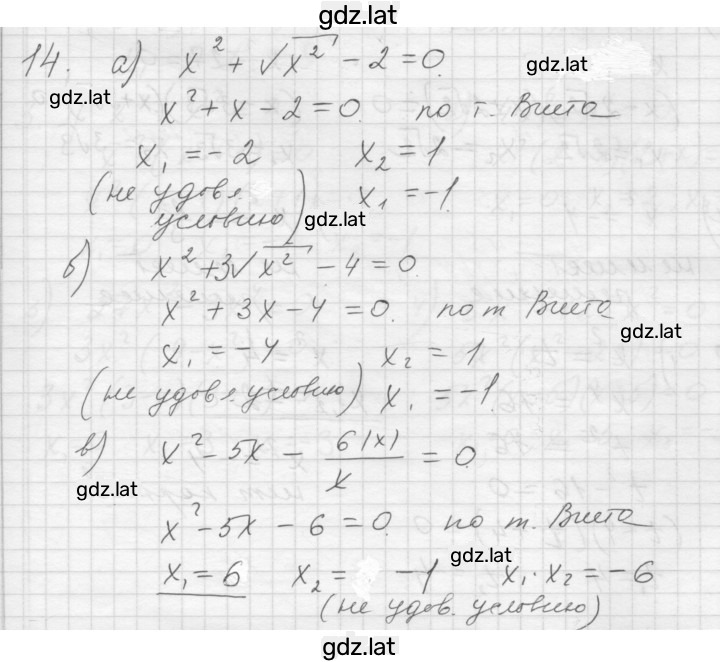 gdz.lat
14. а) x² + √x² - 2 = 0.
gdz.lat
gdz.lat
x² + x - 2 = 0. по т. Виета
x₁ = -2 x₂ = 1
(не удовл. условию) x₁ = -1.
gdz.lat
б) x² + 3√x² - 4 = 0.
x² + 3x - 4 = 0. по т. Виета
gdz.lat
x₁ = -4 x₂ = 1
(не удовл. условию) x₁ = -1.
в) x² - 5x - 6|x|/x = 0
gdz.lat
x² - 5x - 6 = 0. по т. Виета
gdz.lat
x₁ = 6 x₂ = -1 x₁·x₂ = -6
(не удов. условию)
gdz.lat